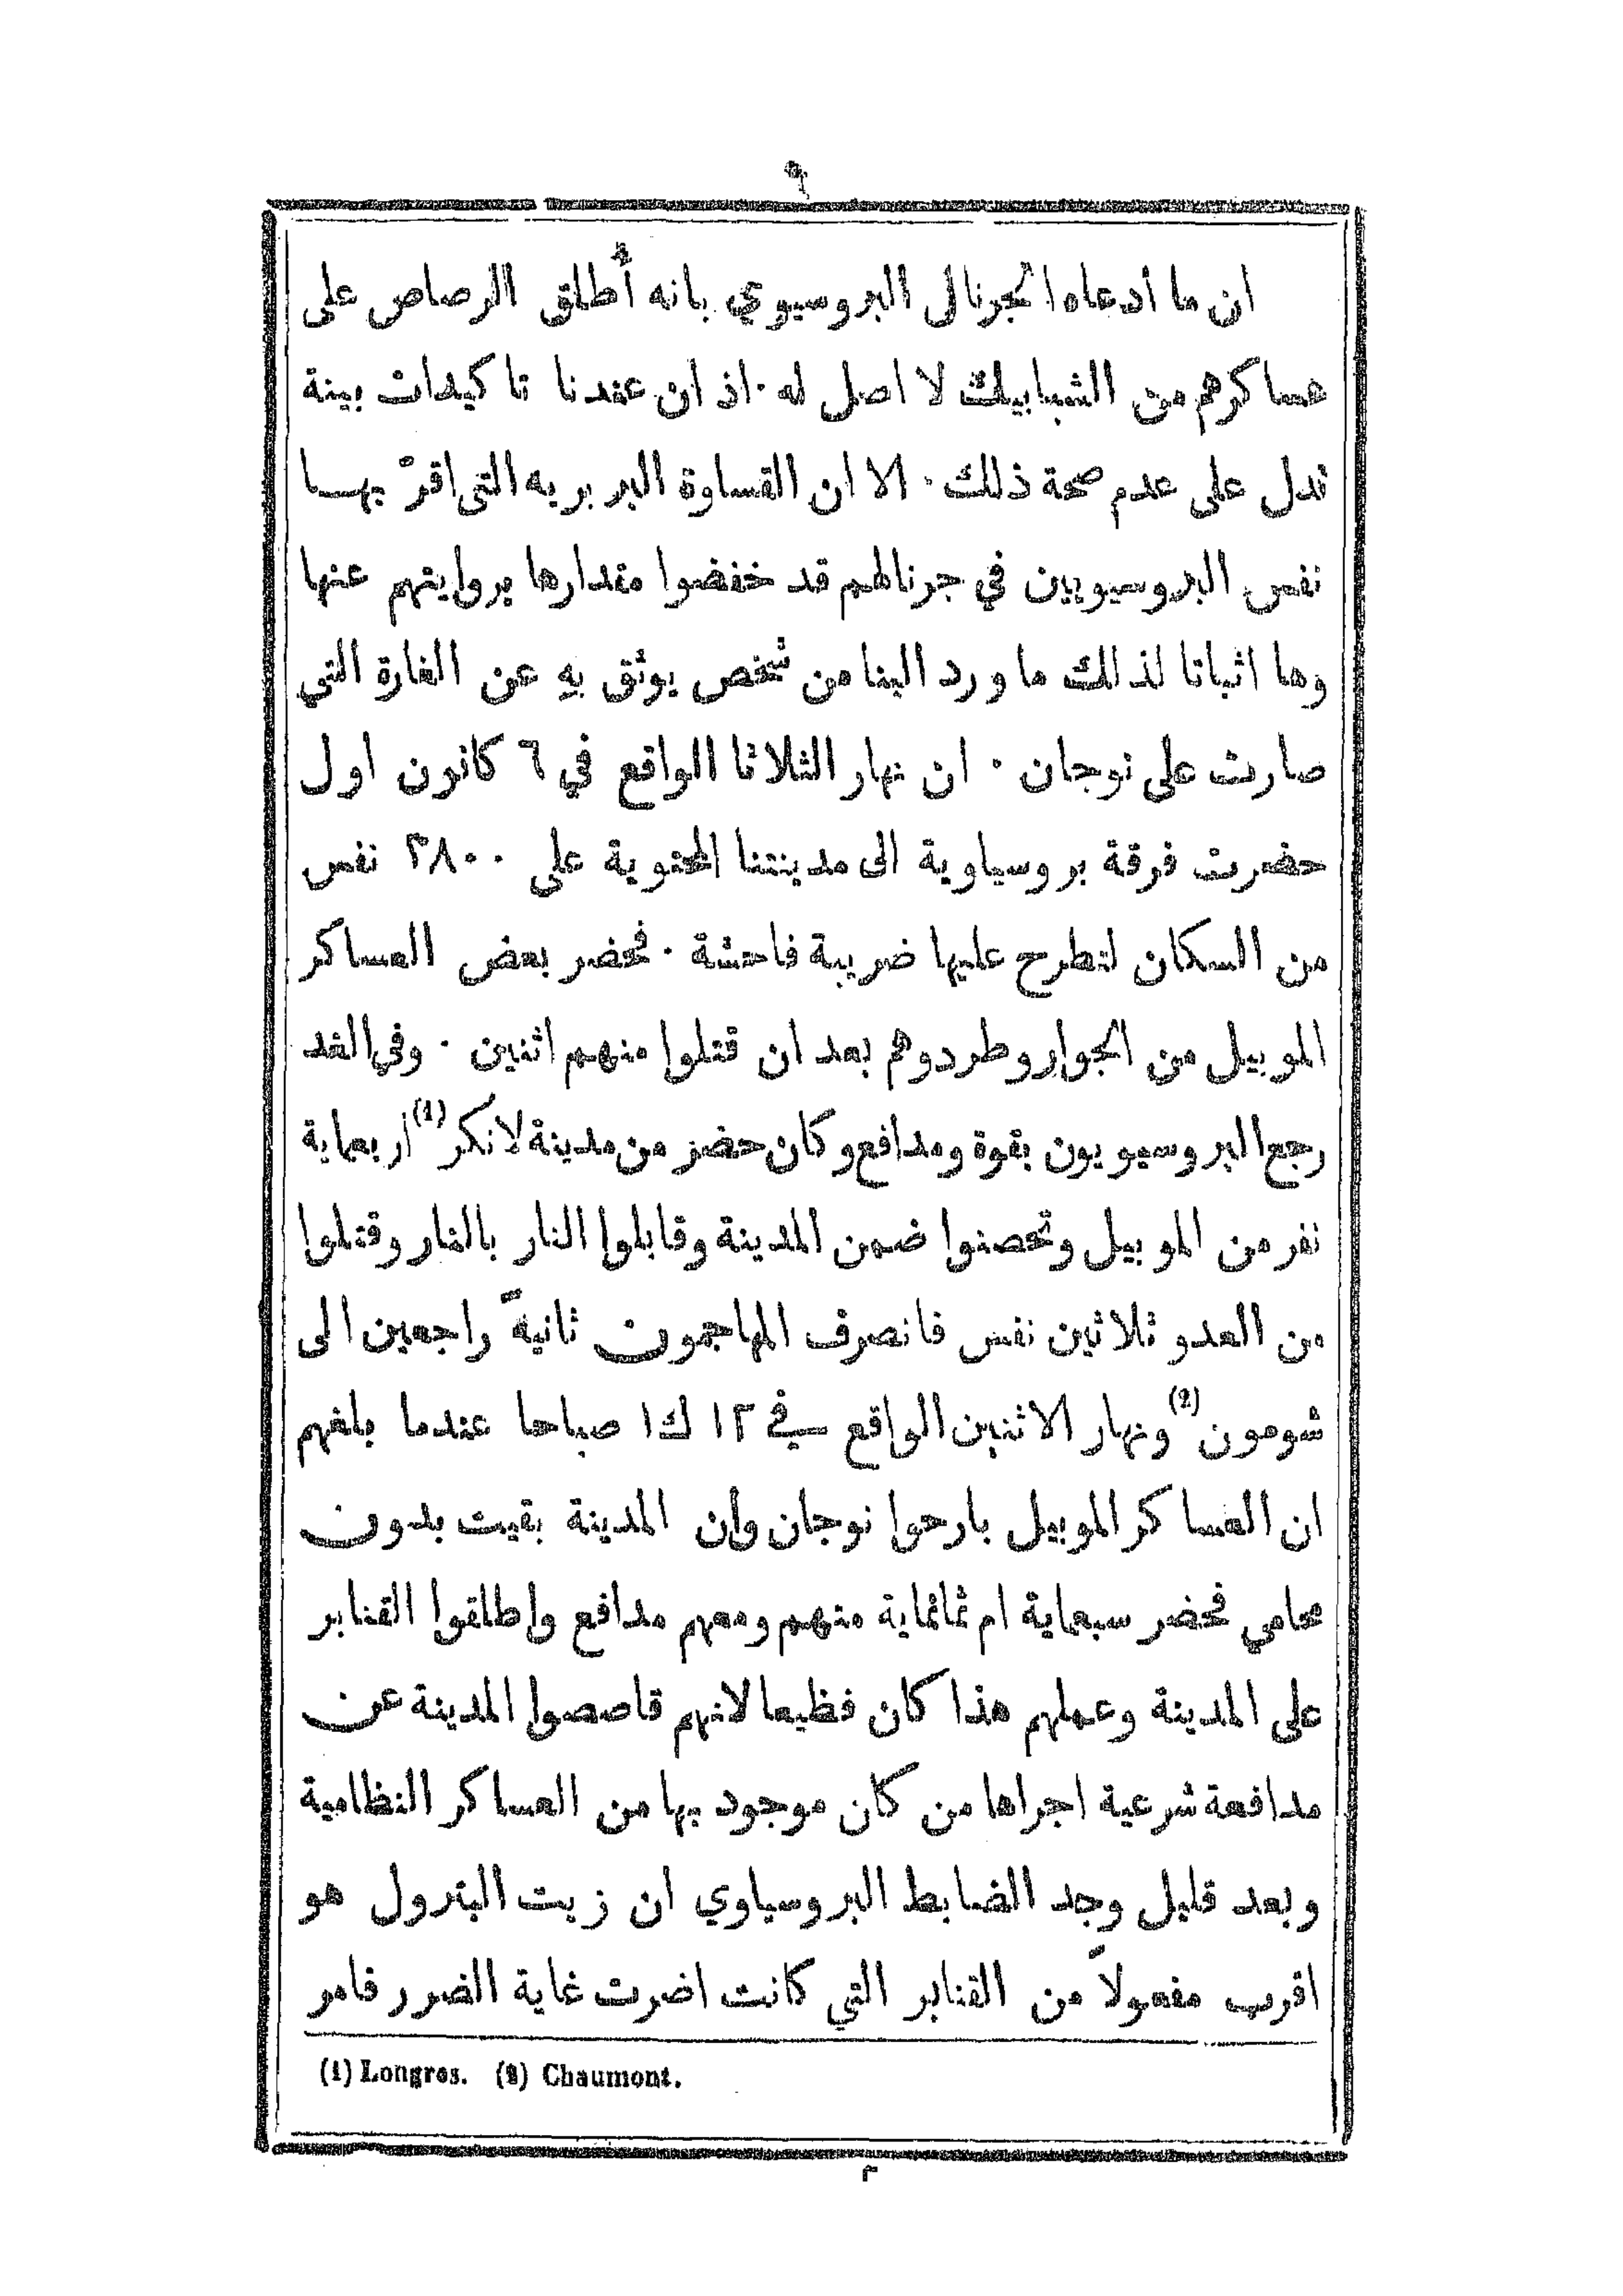 ٩
ان ما أدعاه الجرنال البروسيوي بانه أُطلق الرصاص على
عساكرهم من الشبابيك لا اصل له ٠ اذ ان عندنا تاكيدات بينة
تدل على عدم صحة ذلك ٠ الا ان القساوة البربريه التى اقرّ بهـا
نفس البروسيويين في جرنالهم قد خفضوا مقدارها بروايتهم عنها
وها اثباتا لذلك ما ورد الينا من شخص يوثق بهِ عن الغارة التي
صارت على نوجان ٠ ان نهار الثلاثا الواقع في ٦ كانون اول
حضرت فرقة بروسياوية الى مدينتنا المحتوية على ٣٨٠٠ نفس
من السكان لتطرح عليها ضريبة فاحشة ٠ فحضر بعض العساكر
الموبيل من الجوار وطردوهم بعد ان قتلوا منهم اثنين ٠ وفي الغد
رجع البروسيويون بقوة ومدافع وكان حضر من مدينة لانكر (1) اربعماية
نفر من الموبيل وتحصنوا ضمن المدينة وقابلوا النار بالنار وقتلوا
من العدو ثلاثين نفس فانصرف المهاجمون ثانيةً راجعين الى
شومون (2) ونهار الاثنين الواقع في ١٢ ك١ صباحا عندما بلغهم
ان العساكر الموبيل بارحوا نوجان وأن المدينة بقيت بدون
محامي فحضر سبعماية ام ثمانماية منهم ومعهم مدافع واطلقوا القنابر
على المدينة وعملهم هذا كان فظيعا لانهم قاصصوا المدينة عن
مدافعة شرعية اجراها من كان موجود بها من العساكر النظامية
وبعد قليل وجد الضابط البروسياوي ان زيت البترول هو
اقرب مفعولاً من القنابر التي كانت اضرت غاية الضرر فامر
(1) Longres. (2) Chaumont.
٢